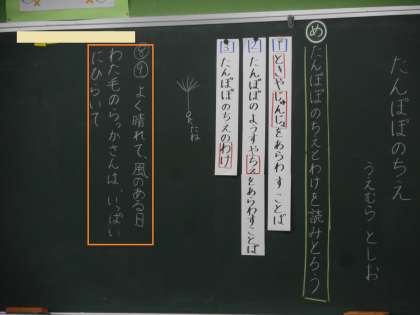 たんぽぽのちえ
うえむら としお
め
たんぽぽのちえとわけを読みとろう
1 ときやじゅんじょをあらわすことば
2 たんぽぽのようすやちえをあらわすことば
3 たんぽぽのちえのわけ
たね
よく晴れて、風のある日
わた毛のらっかさんは、いっぱい
にひらいて